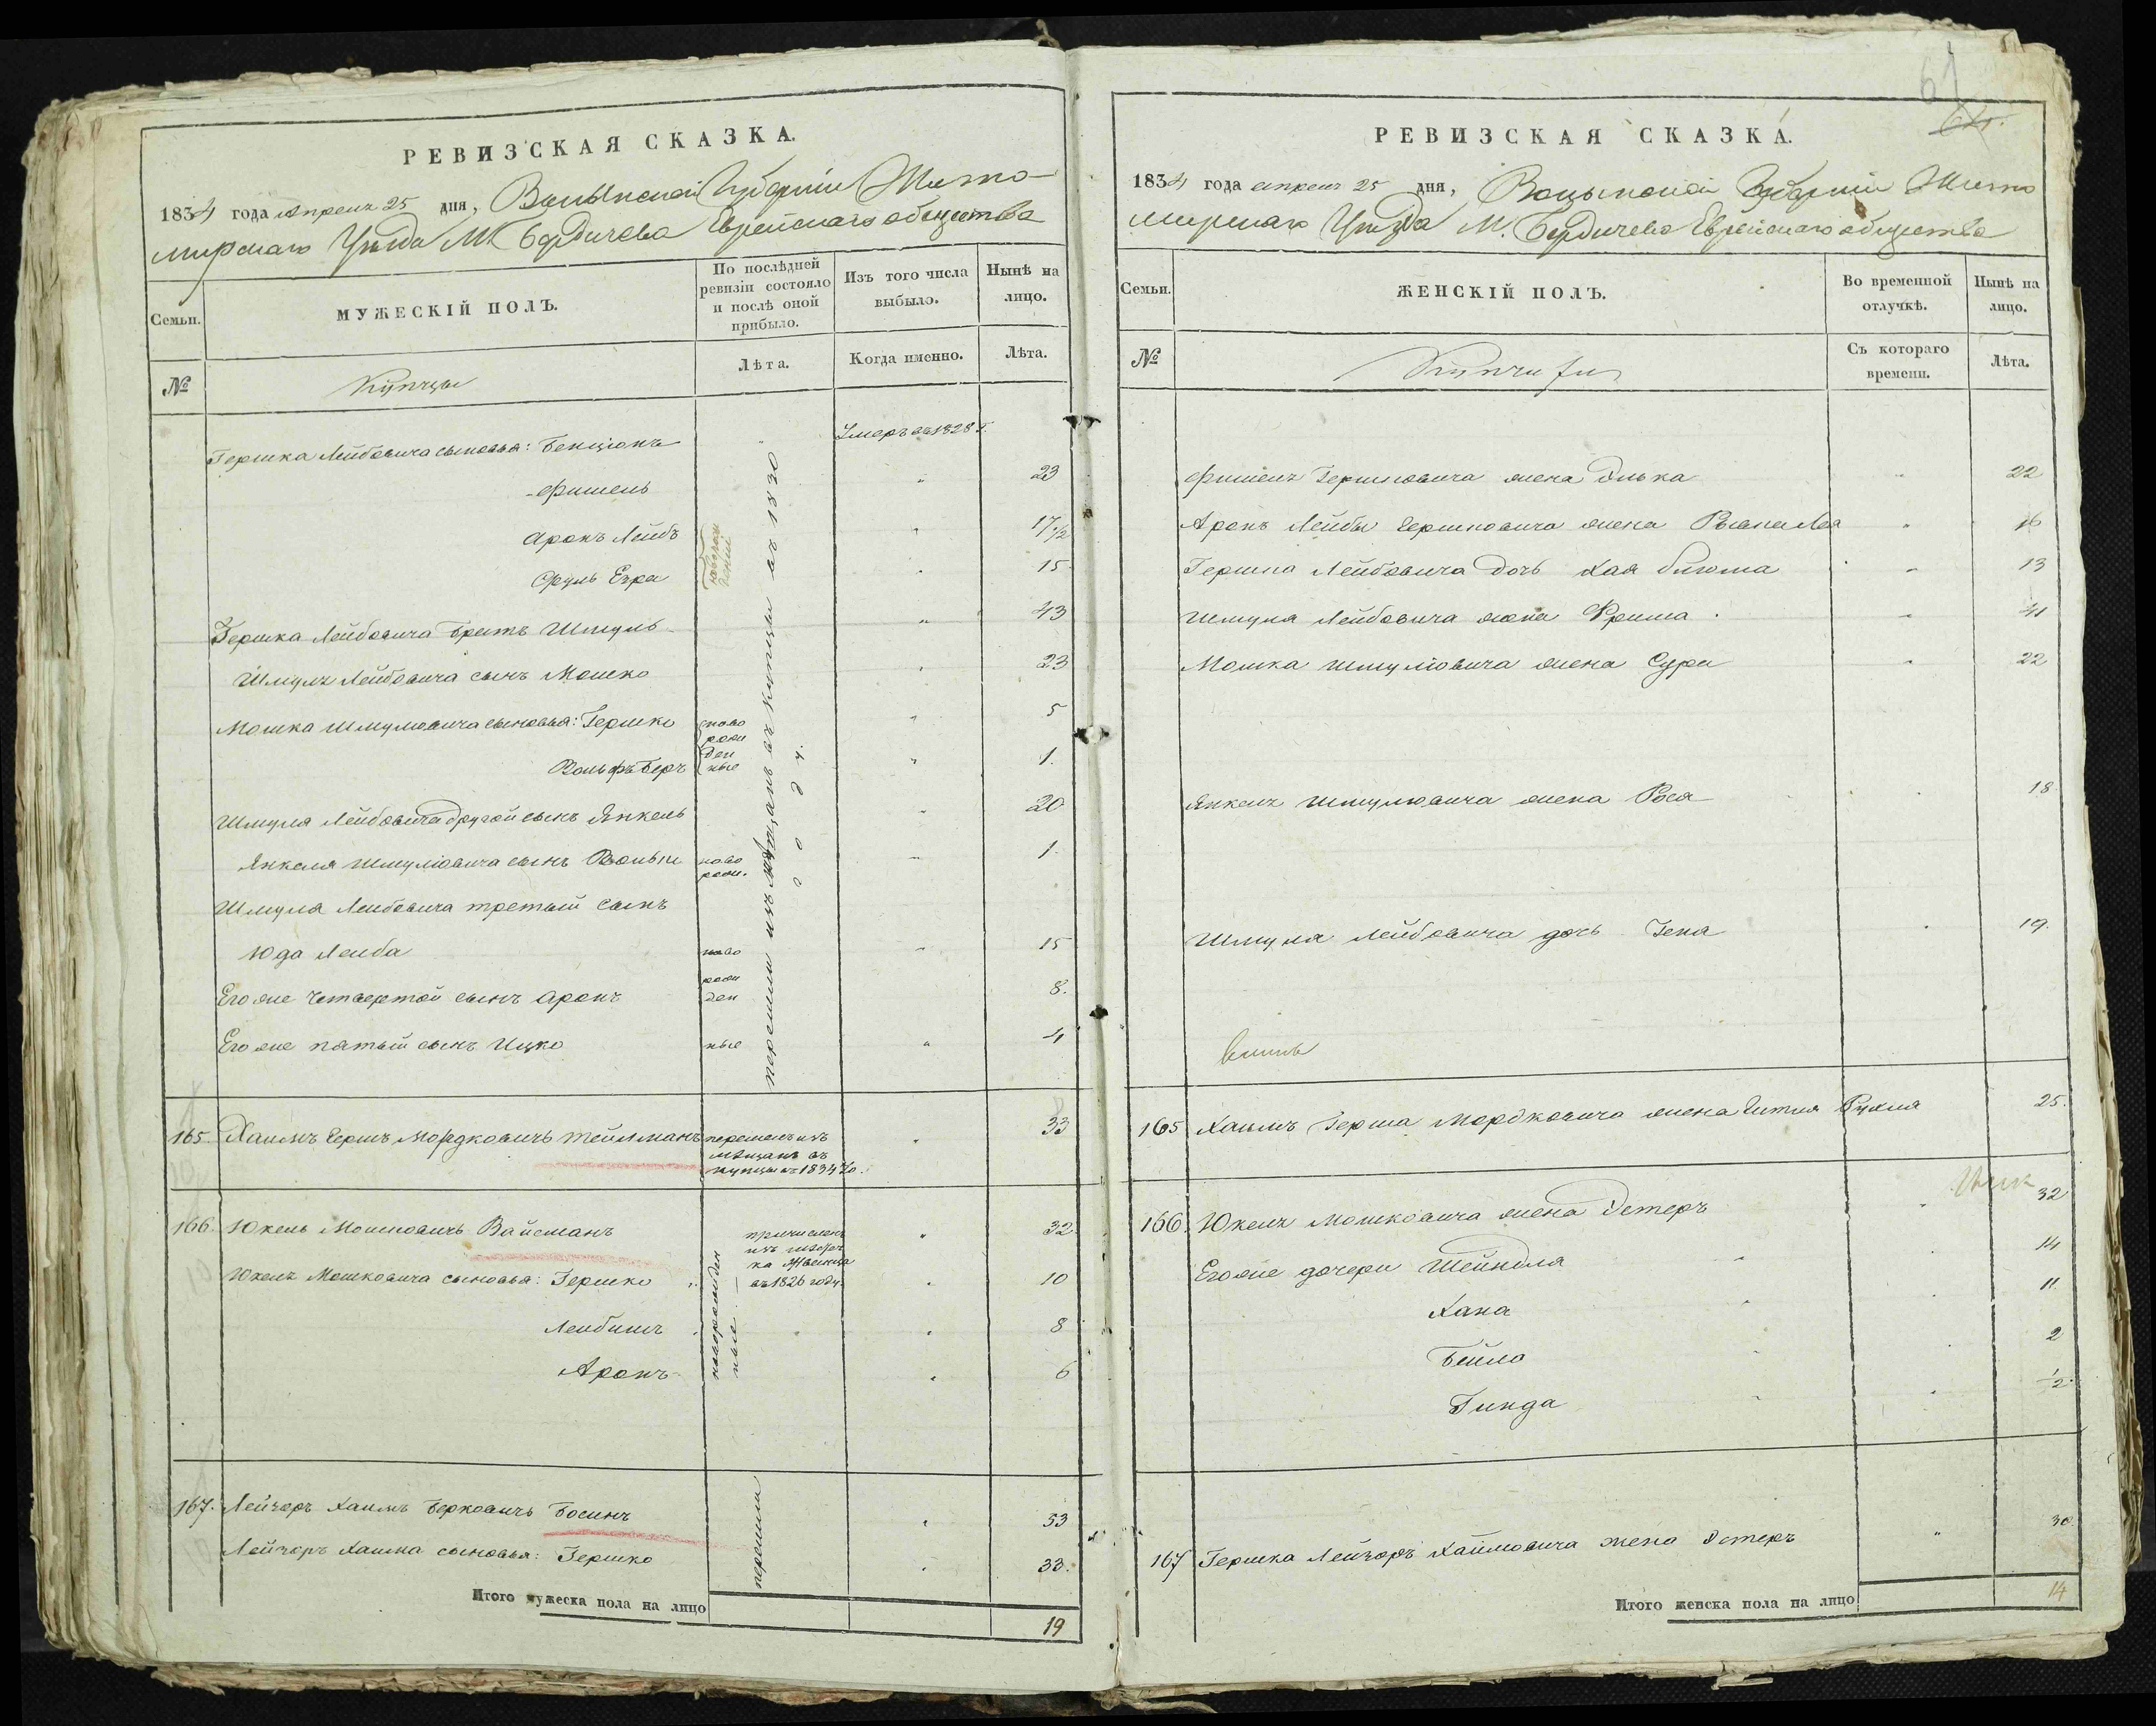 РЕВИЗСКАЯ СКАЗКА.
1834 года Апреля 25 дня, Волынской Губерніи Жито-
мирскаго Уѣзда М. Бердичева Еврейскаго общества
Семьи.
МУЖЕСКІЙ ПОЛЪ.
По послѣдней ревизіи состояло и послѣ оной прибыло.
Изъ того числа выбыло.
Нынѣ на лицо.
№
Купцы
Лѣта.
Когда именно.
Лѣта.
Гершка Лейбовича сыновья: Бенціонъ " Умеръ въ 1828 г.
Фишель " 23
Аронъ Лейбъ " 17 1/2
Сруль Езра " 15
новорож
денные
Гершка Лейбовича братъ Шмуль " 43
Шмуля Лейбовича сынъ Мошко " 23
Мошка Шмулювича сыновья: Гершко " 5
Вольфъ Беръ " 1.
ново
рож
ден
ные
Шмуля Лейбовича другой сынъ Янкель " 20
Янкеля Шмулювича сынъ Вольки ново рож. " 1.
Шмуля Лейбовича третьій сынъ
Юда Лейба ново " 15
Его же четвертой сынъ Аронъ рож ден 8.
Его же пятый сынъ Ицко ные " 4
перешли изъ мѣщанъ въ купцы въ 1830
году.
165. Хаимъ Гершъ Мордковичъ Тейлманъ перешелъ изъ " 33
мѣщанъ въ
купцы въ 1834 го.
166. Юкель Мошковичъ Вайсманъ причисленъ " 32
изъ
ка
въ 1826 году.
Юкеля Мошковича сыновья: Гершко " 10
Лейбишъ " 8
Аронъ " 6
новорожден
ные
167. Лейзоръ Хаимъ Берковичъ Босинъ " 53
Лейзоръ Хаима сыновья: Гершко " 33.
перешли
Итого мужеска пола на лицо 19
61
РЕВИЗСКАЯ СКАЗКА.
1834 года апреля 25 дня, Волынской Губерніи Жито
мирскаго Уѣзда М. Бердичева Еврейскаго общества
Семьи.
ЖЕНСКІЙ ПОЛЪ.
Во временной отлучкѣ.
Нынѣ на лицо.
№
Съ котораго времени.
Лѣта.
Фишеля Гершковича жена Элька " 22
Аронъ Лейбы Гершковича жена Лея " 16
Гершка Лейбовича дочь Хая Блюма " 13
Шмуля Лейбовича жена Фрима " 41
Мошка Шмулювича жена Сура " 22
Янкеля Шмулювича жена Роса 18
Шмуля Лейбовича дочь Гена " 19.
165 Хаимъ Герша Мордковича жена Гитля Рухля 25.
166. Юкеля Мошковича жена Эстеръ " 32
Его же дочери Шейндля " 14
Хана " 11.
Бейла " 2
Гинда " 1/2.
167 Гершка Лейзоръ Хаимовича жена Эстеръ " 30
Итого женска пола на лицо 14